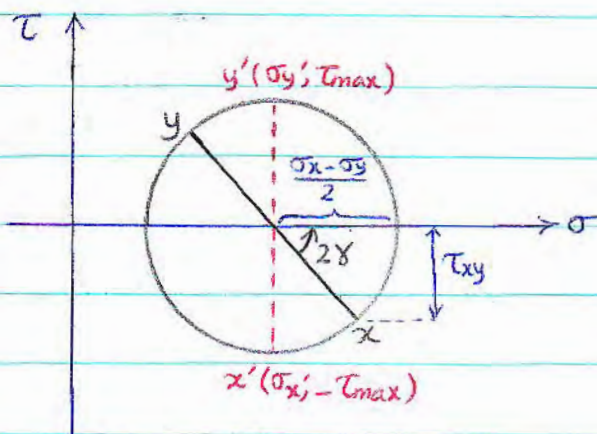 τ
y′(σy′, τmax)
y
σx - σy
2
σ
2γ
τxy
x
x′(σx′, -τmax)